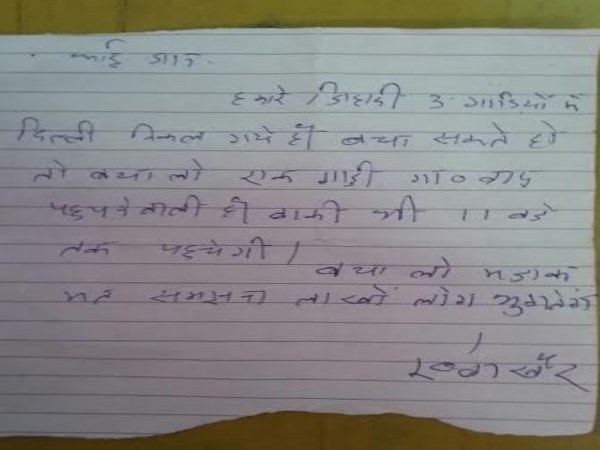 भाई जान.
हमारे जिहादी 3 गाड़ियों में
दिल्ली निकल गये हैं बचा सकते हो
तो बचा लो एक गाड़ी गा०बाद
पहुचने वाली है बाकी भी 11 बजे
तक पहुचेगी।
बचा लो मजाक
मत समझना लाखों लोग